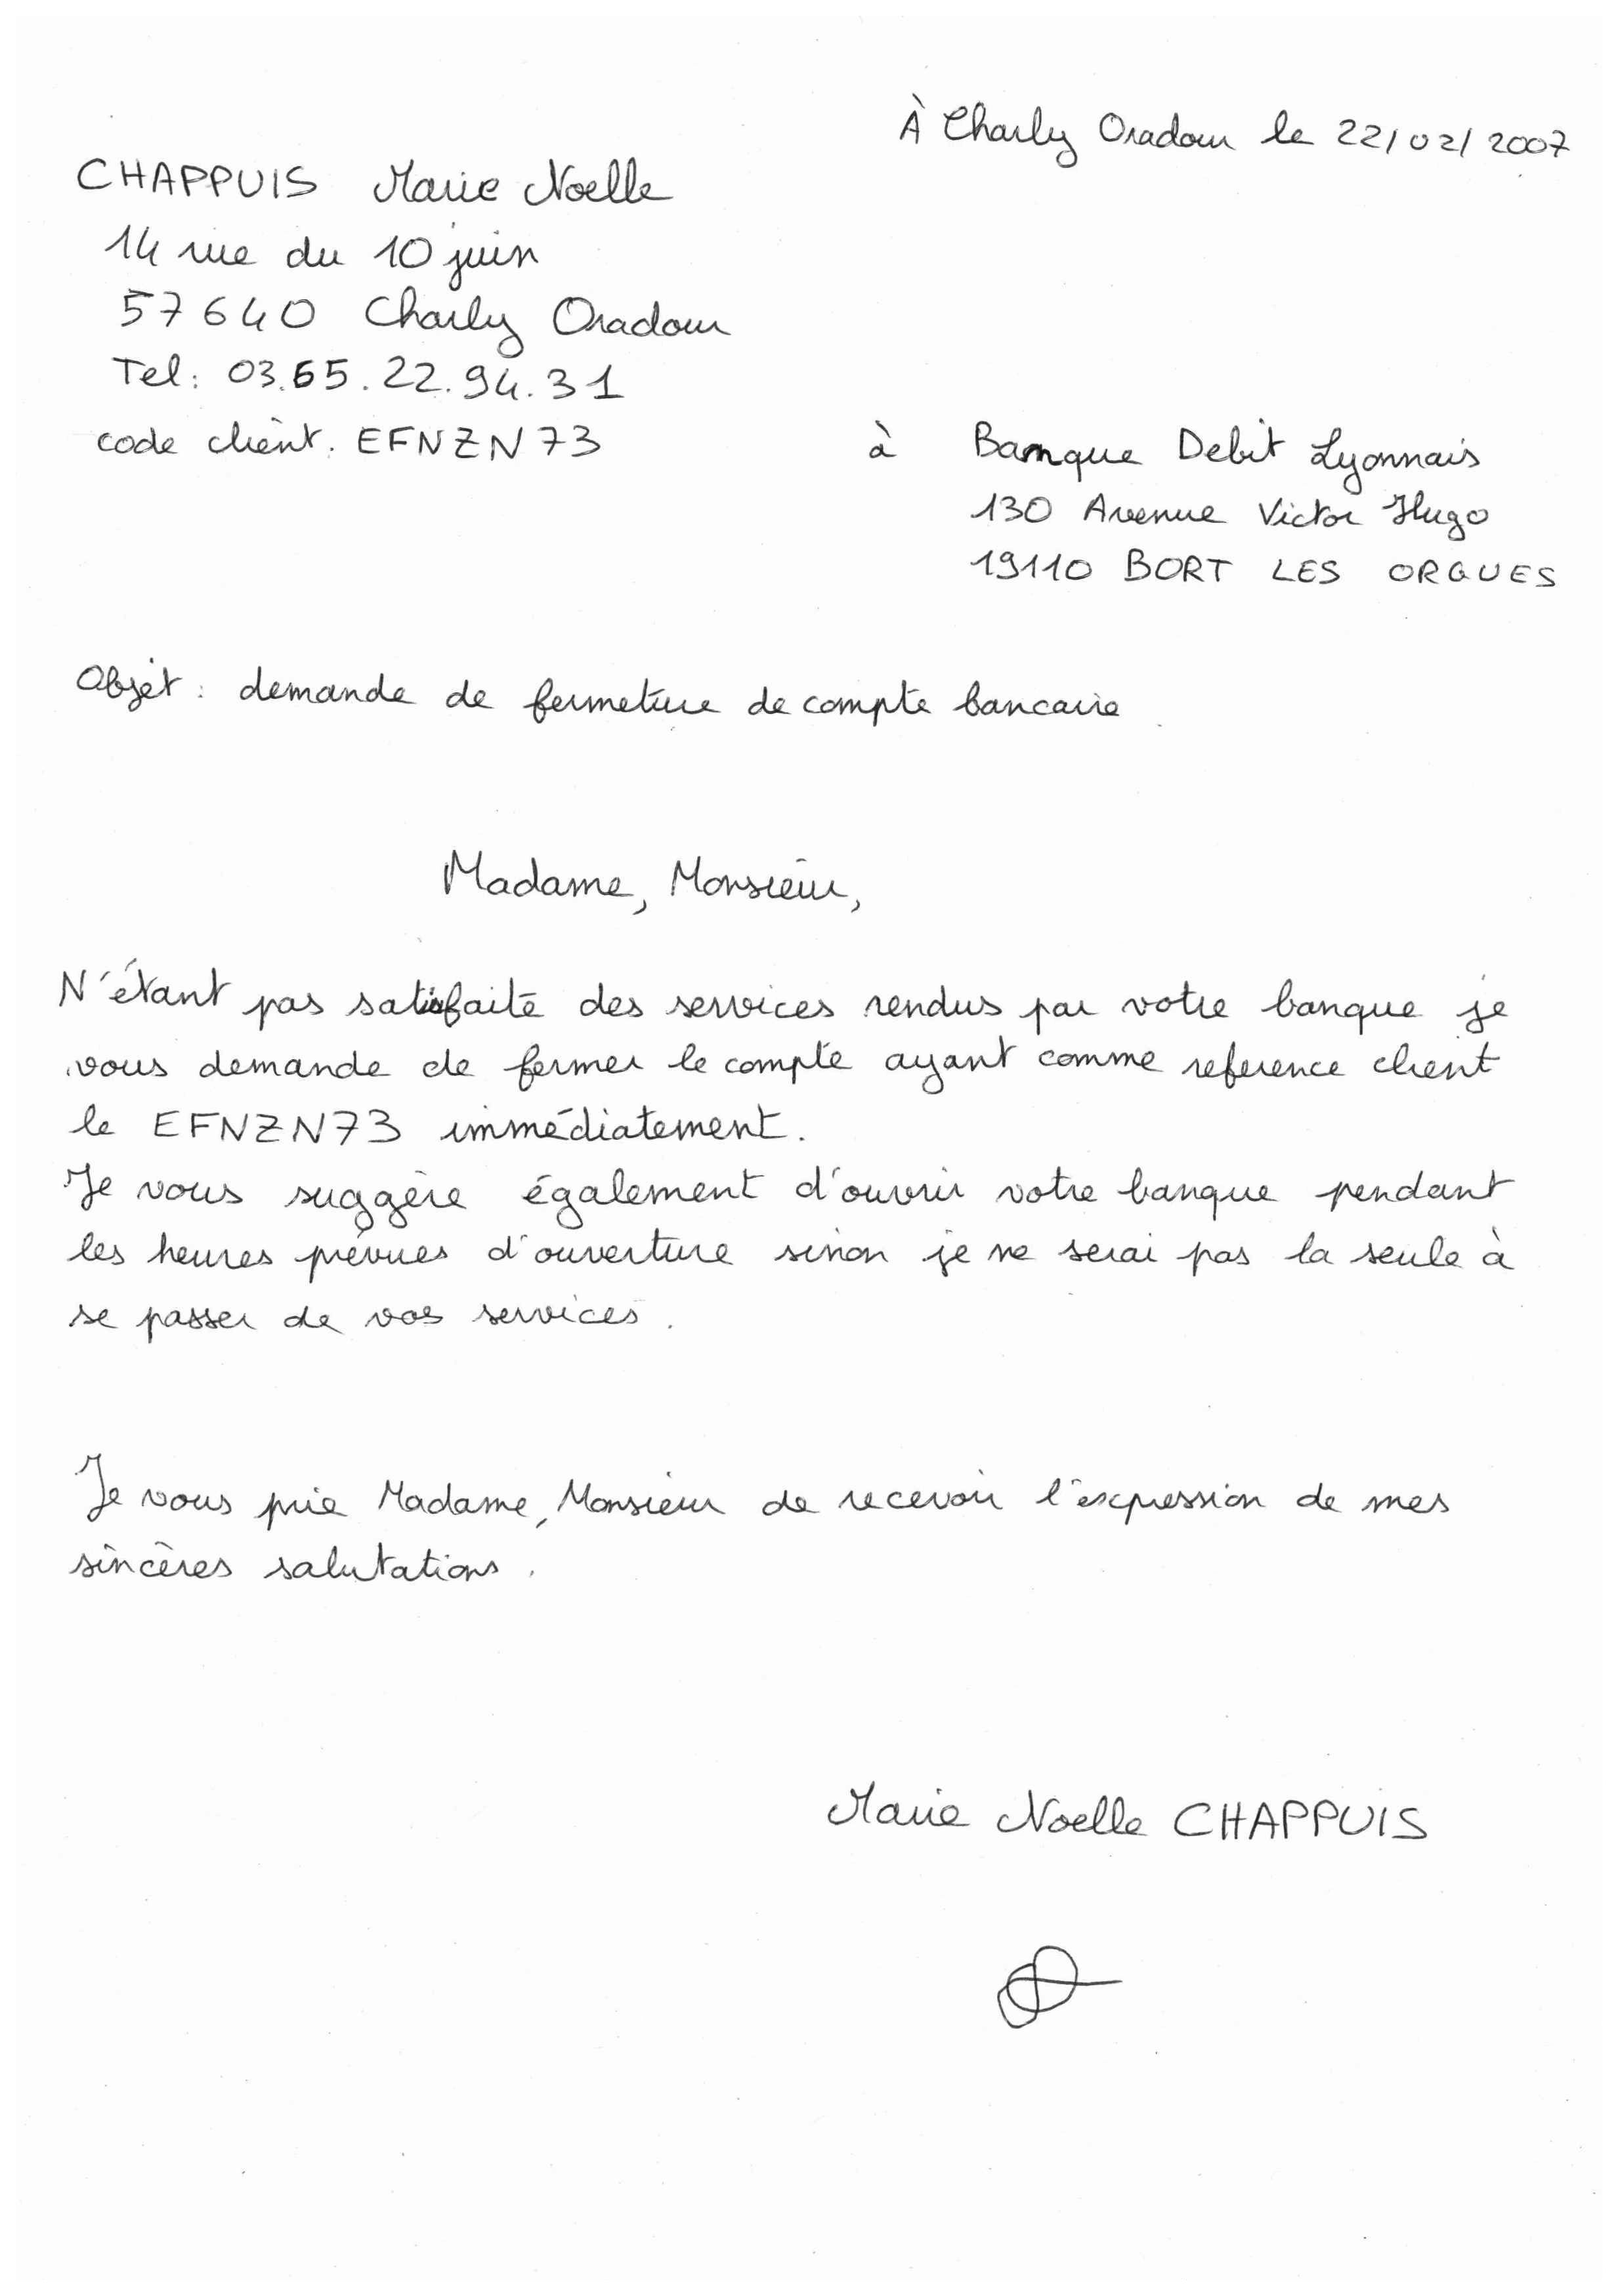 À Charly Oradour le 22/02/2007
CHAPPUIS Marie Noelle
14 rue du 10 juin
57640 Charly Oradour
Tel: 03.65.22.94.31
code client: EFNZN73
à Banque Debit Lyonnais
130 Avenue Victor Hugo
19110 BORT LES ORGUES
Objet: demande de fermeture de compte bancaire
Madame, Monsieur,
N'étant pas satisfaite des services rendus par votre banque je
vous demande de fermer le compte ayant comme reference client
le EFNZN73 immédiatement.
Je vous suggère également d'ouvrir votre banque pendant
les heures prévues d'ouverture sinon je ne serai pas la seule à
se passer de vos services.
Je vous prie Madame, Monsieur de recevoir l'expression de mes
sincères salutations.
Marie Noelle CHAPPUIS